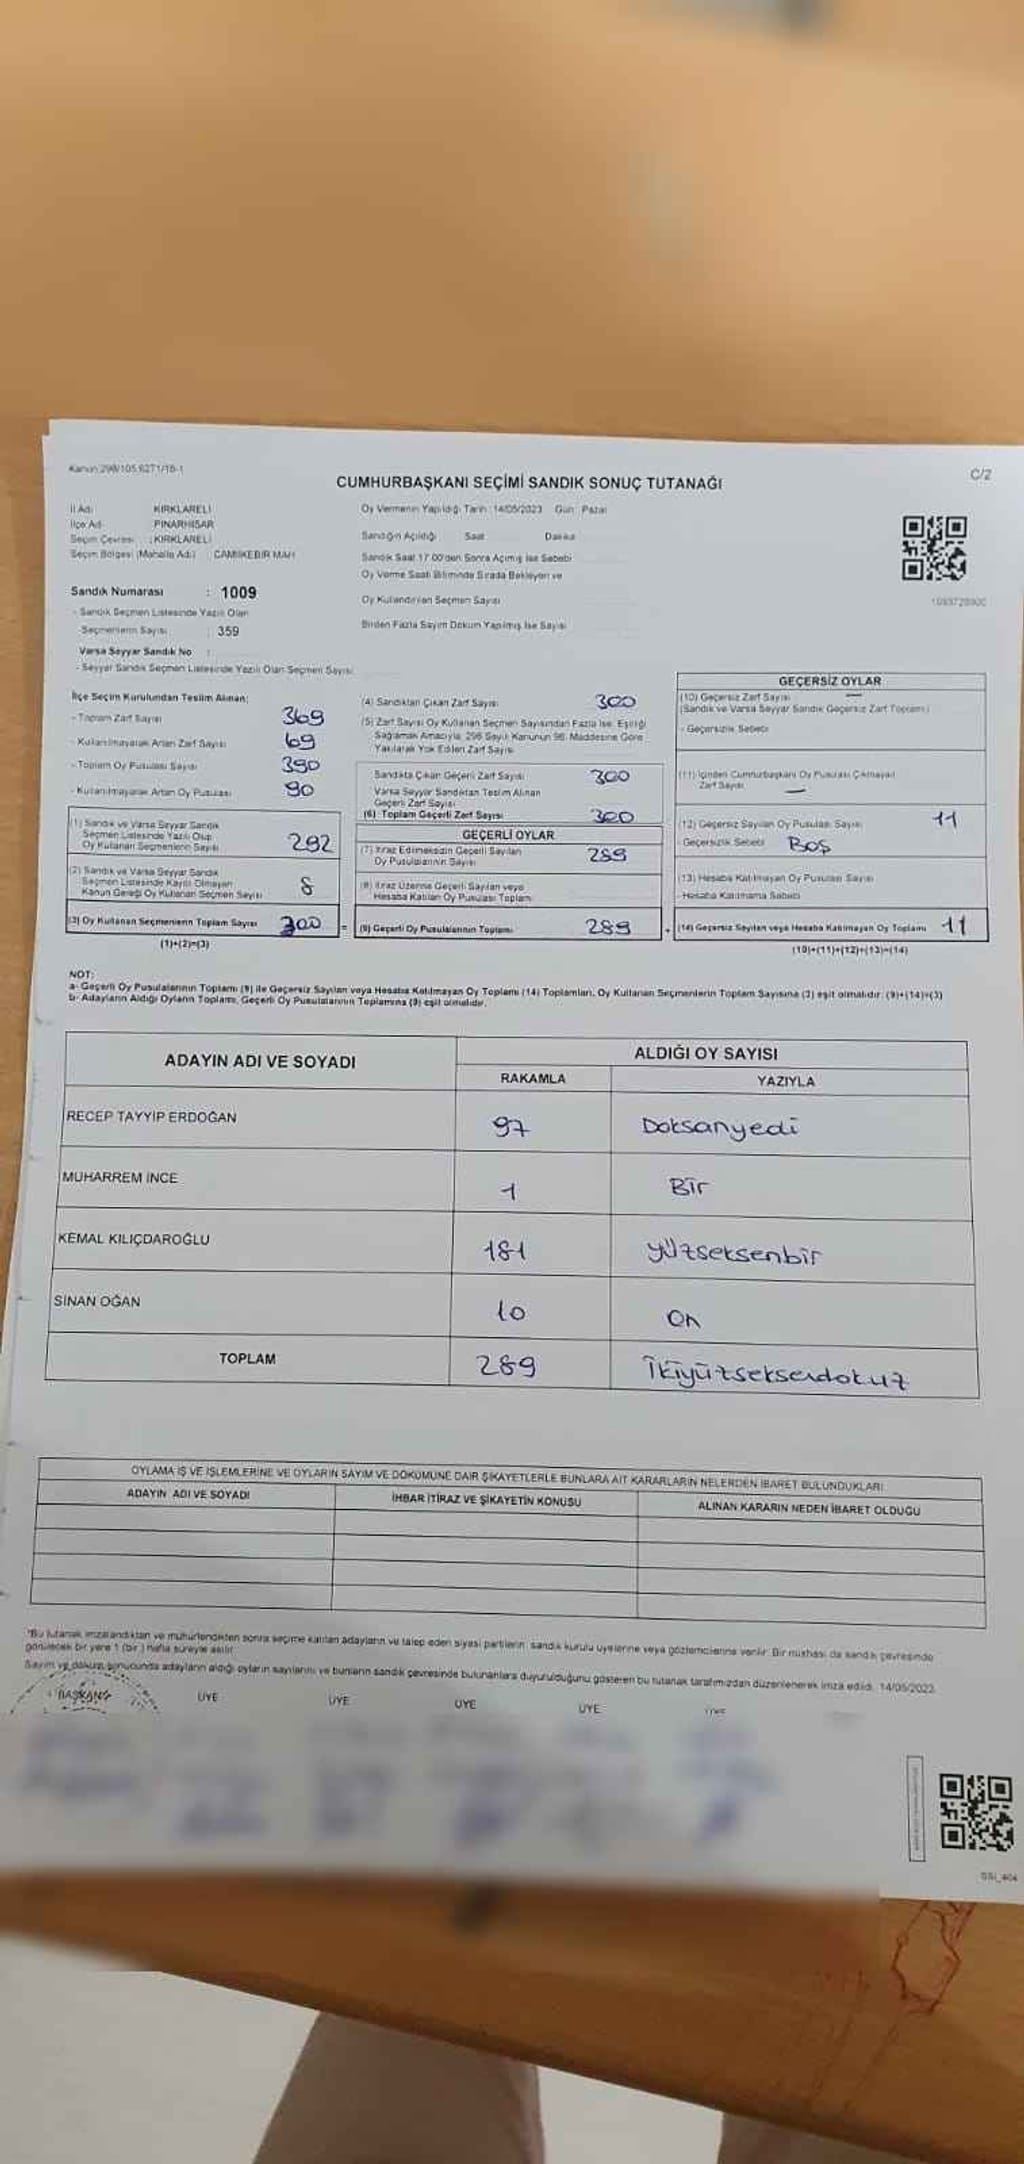 Kanun:298/105,6271/18-1
C/2
CUMHURBAŞKANI SEÇİMİ SANDIK SONUÇ TUTANAĞI
İl Adı : KIRKLARELİ
İlçe Adı : PINARHİSAR
Seçim Çevresi : KIRKLARELİ
Seçim Bölgesi (Mahalle Adı) : CAMİİKEBİR MAH
Sandık Numarası : 1009
- Sandık Seçmen Listesinde Yazılı Olan
Seçmenlerin Sayısı : 359
Varsa Seyyar Sandık No :
- Seyyar Sandık Seçmen Listesinde Yazılı Olan Seçmen Sayısı
Oy Vermenin Yapıldığı Tarih : 14/05/2023 Gün : Pazar
Sandığın Açıldığı Saat Dakika
Sandık Saat 17.00'den Sonra Açılmış İse Sebebi
Oy Verme Saati Bitiminde Sırada Bekleyen ve
Oy Kullandırılan Seçmen Sayısı
Birden Fazla Sayım Döküm Yapılmış İse Sayısı
İlçe Seçim Kurulundan Teslim Alınan:
- Toplam Zarf Sayısı 369
- Kullanılmayarak Artan Zarf Sayısı 69
- Toplam Oy Pusulası Sayısı 390
- Kullanılmayarak Artan Oy Pusulası 90
(1) Sandık ve Varsa Seyyar Sandık
Seçmen Listesinde Yazılı Olup
Oy Kullanan Seçmenlerin Sayısı 292
(2) Sandık ve Varsa Seyyar Sandık
Seçmen Listesinde Kayıtlı Olmayan
Kanun Gereği Oy Kullanan Seçmen Sayısı 8
(3) Oy Kullanan Seçmenlerin Toplam Sayısı 300 =
(1)+(2)=(3)
(4) Sandıktan Çıkan Zarf Sayısı 300
(5) Zarf Sayısı Oy Kullanan Seçmen Sayısından Fazla İse, Eşitliği
Sağlamak Amacıyla, 298 Sayılı Kanunun 98. Maddesine Göre
Yakılarak Yok Edilen Zarf Sayısı
Sandıkta Çıkan Geçerli Zarf Sayısı 300
Varsa Seyyar Sandıktan Teslim Alınan
Geçerli Zarf Sayısı
(6) Toplam Geçerli Zarf Sayısı 300
GEÇERLİ OYLAR
(7) İtiraz Edilmeksizin Geçerli Sayılan
Oy Pusulalarının Sayısı 289
(8) İtiraz Üzerine Geçerli Sayılan veya
Hesaba Katılan Oy Pusulası Toplamı
(9) Geçerli Oy Pusulalarının Toplamı 289 +
GEÇERSİZ OYLAR
(10) Geçersiz Zarf Sayısı —
(Sandık ve Varsa Seyyar Sandık Geçersiz Zarf Toplamı)
- Geçersizlik Sebebi
(11) İçinden Cumhurbaşkanı Oy Pusulası Çıkmayan
Zarf Sayısı —
(12) Geçersiz Sayılan Oy Pusulası Sayısı 11
- Geçersizlik Sebebi Boş
(13) Hesaba Katılmayan Oy Pusulası Sayısı
- Hesaba Katılmama Sebebi
(14) Geçersiz Sayılan veya Hesaba Katılmayan Oy Toplamı 11
(10)+(11)+(12)+(13)=(14)
NOT:
a- Geçerli Oy Pusulalarının Toplamı (9) ile Geçersiz Sayılan veya Hesaba Katılmayan Oy Toplamı (14) Toplamları, Oy Kullanan Seçmenlerin Toplam Sayısına (3) eşit olmalıdır. (9)+(14)=(3)
b- Adayların Aldığı Oyların Toplamı, Geçerli Oy Pusulalarının Toplamına (9) eşit olmalıdır.
ADAYIN ADI VE SOYADI
ALDIĞI OY SAYISI
RAKAMLA YAZIYLA
RECEP TAYYİP ERDOĞAN 97 Doksanyedi
MUHARREM İNCE 1 Bir
KEMAL KILIÇDAROĞLU 181 yüzseksenbir
SİNAN OĞAN 10 On
TOPLAM 289 İkiyüzseksendokuz
OYLAMA İŞ VE İŞLEMLERİNE VE OYLARIN SAYIM VE DÖKÜMÜNE DAİR ŞİKAYETLERLE BUNLARA AİT KARARLARIN NELERDEN İBARET BULUNDUKLARI
ADAYIN ADI VE SOYADI İHBAR İTİRAZ VE ŞİKAYETİN KONUSU ALINAN KARARIN NEDEN İBARET OLDUĞU
*Bu tutanak imzalandıktan ve mühürlendikten sonra seçime katılan adayların ve talep eden siyasi partilerin sandık kurulu üyelerine veya gözlemcilerine verilir. Bir nüshası da sandık çevresinde
görülecek bir yere 1 (bir) hafta süreyle asılır.
Sayım ve döküm sonucunda adayların aldığı oyların sayılarını ve bunların sandık çevresinde bulunanlara duyurulduğunu gösteren bu tutanak tarafımızdan düzenlenerek imza edildi. 14/05/2023
BAŞKAN ÜYE ÜYE ÜYE ÜYE